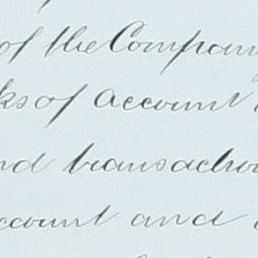 of the Company
ks of account
nd transactio
ccount and